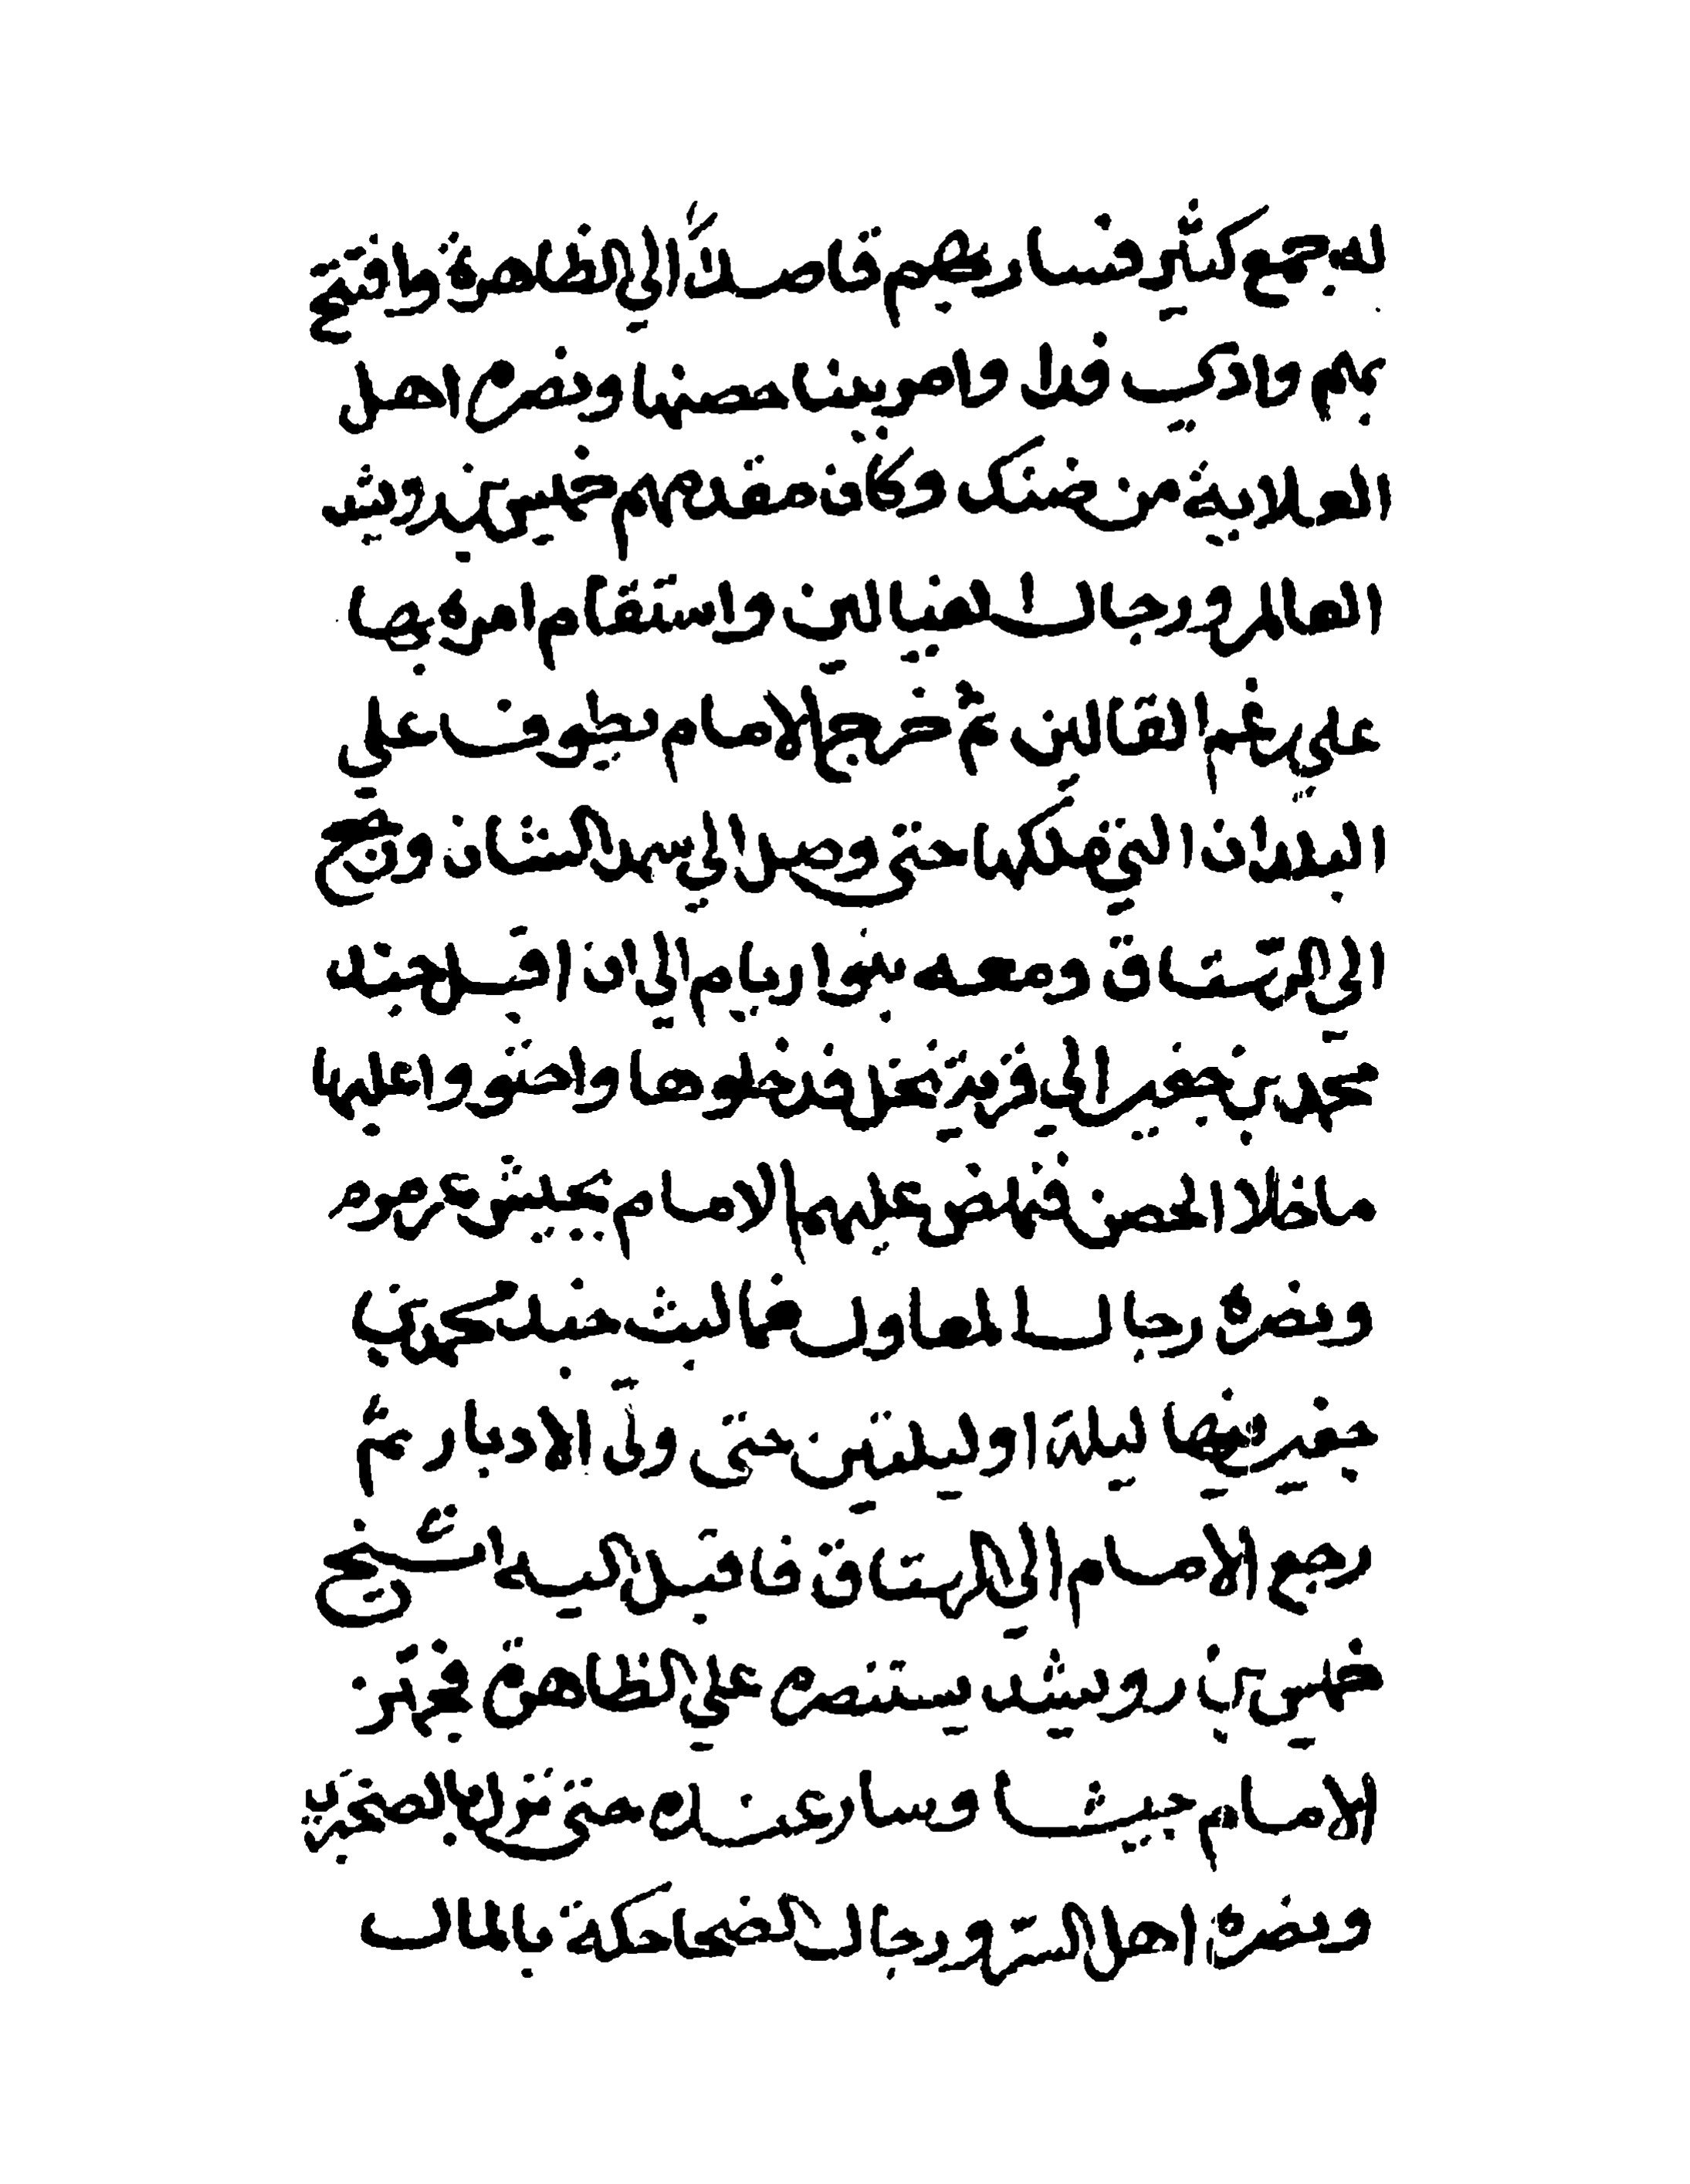 له جمع كثير فسار بهم قاصداً الي الظاهرة وافتتح
بهم وادي فدا وامر ببنا حصنها ونصره اهل
العلاية من ضنك وكان مقدمهم خميس بن رويشد
العالم ورجال الغيالين واستقام امره بها
علي رغم القالين ثم خرج الامام يطوف علي
البلدان التي ملكها حتى وصل الي سمد الشان ورجع
الي الرستاق ومعه بنوا ريام الي ان اقبل جند
محمد بن جفير الي قرية نخل فدخلوها واحتووا عليها
ماخلا الحصن فنهض عليهم الامام بجيش عرمرم
ونصره رجال المعاول فما لبث جند محمد بن
جفير فيها ليلة او ليلتين حتى ولى الادبار ثم
رجع الامام الي الرستاق فاقبل اليه الشيخ
خميس بن رويشد يستنصره علي الظاهرة فجهز
الامام جيشا وسار عنده حتى نزل بالصخبري
ونصره اهل السر ورجال الضحاحكة بالمال